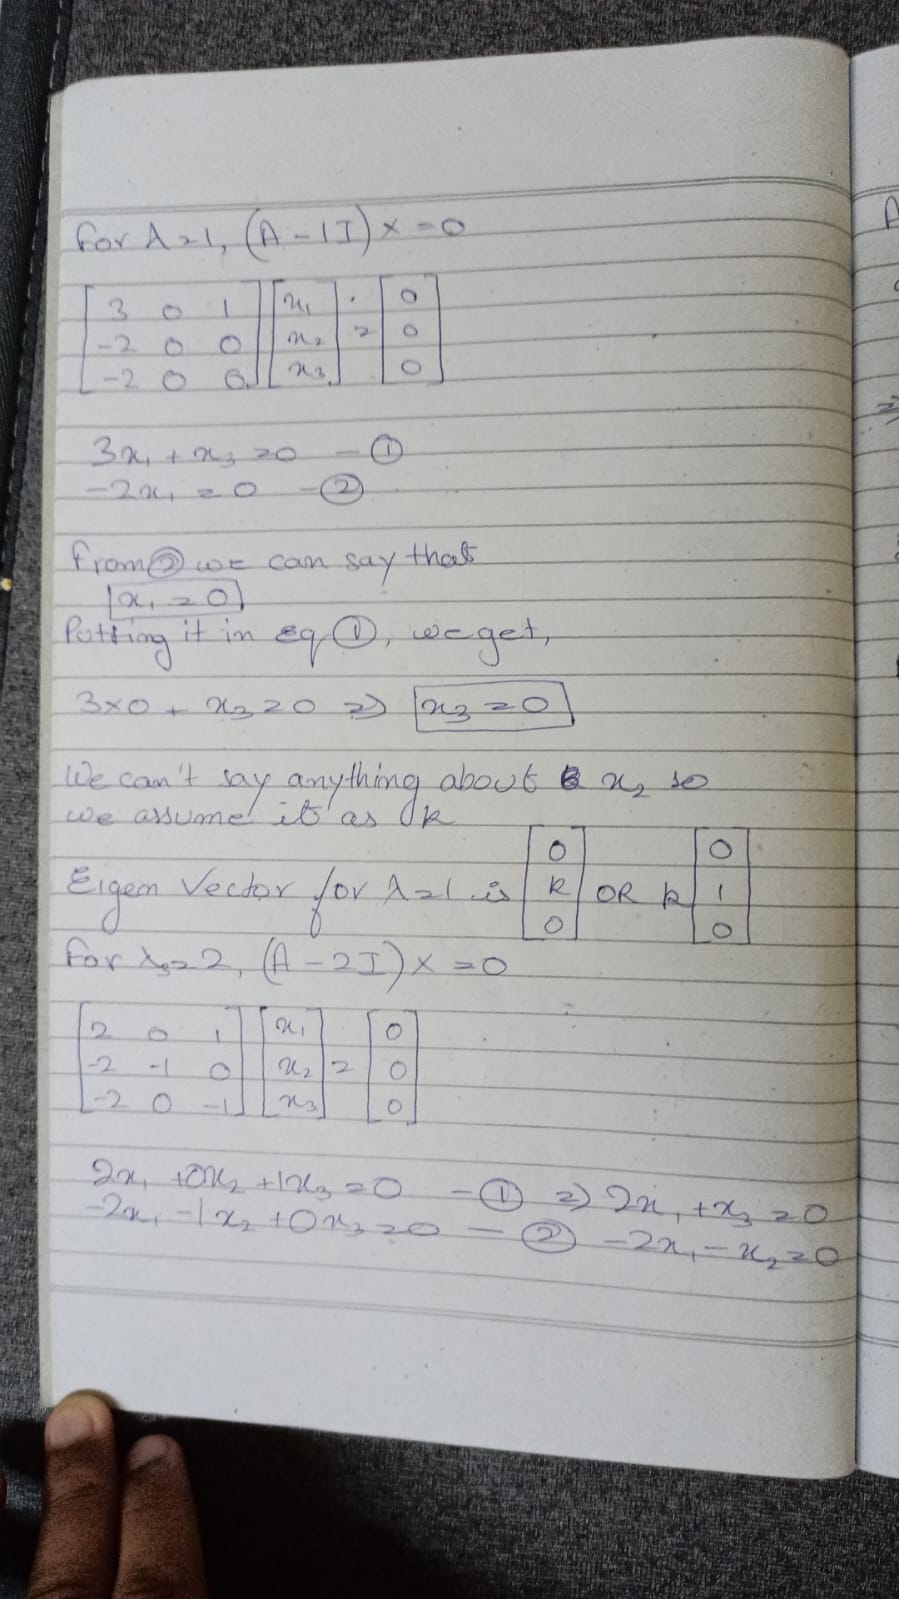 For λ=1, (A-1I)x=0
[3 0 1] [x₁] = [0]
[-2 0 0] [x₂] [0]
[-2 0 0] [x₃] [0]
3x₁ + x₃ = 0 — ①
-2x₁ = 0 — ②
From ② we can say that
x₁ = 0
Putting it in eq ①, we get,
3×0 + x₃ = 0 ⇒ x₃ = 0
We can't say anything about x₂ so
we assume it as k
Eigen Vector for λ=1 is [0 k 0] OR k [0 1 0]
For λ₃=2, (A-2I)x=0
[2 0 1] [x₁] = [0]
[-2 -1 0] [x₂] [0]
[-2 0 -1] [x₃] [0]
2x₁ +0x₂ +1x₃ = 0 — ① ⇒ 2x₁ + x₃ = 0
-2x₁ -1x₂ +0x₃ = 0 — ② -2x₁ - x₂ = 0